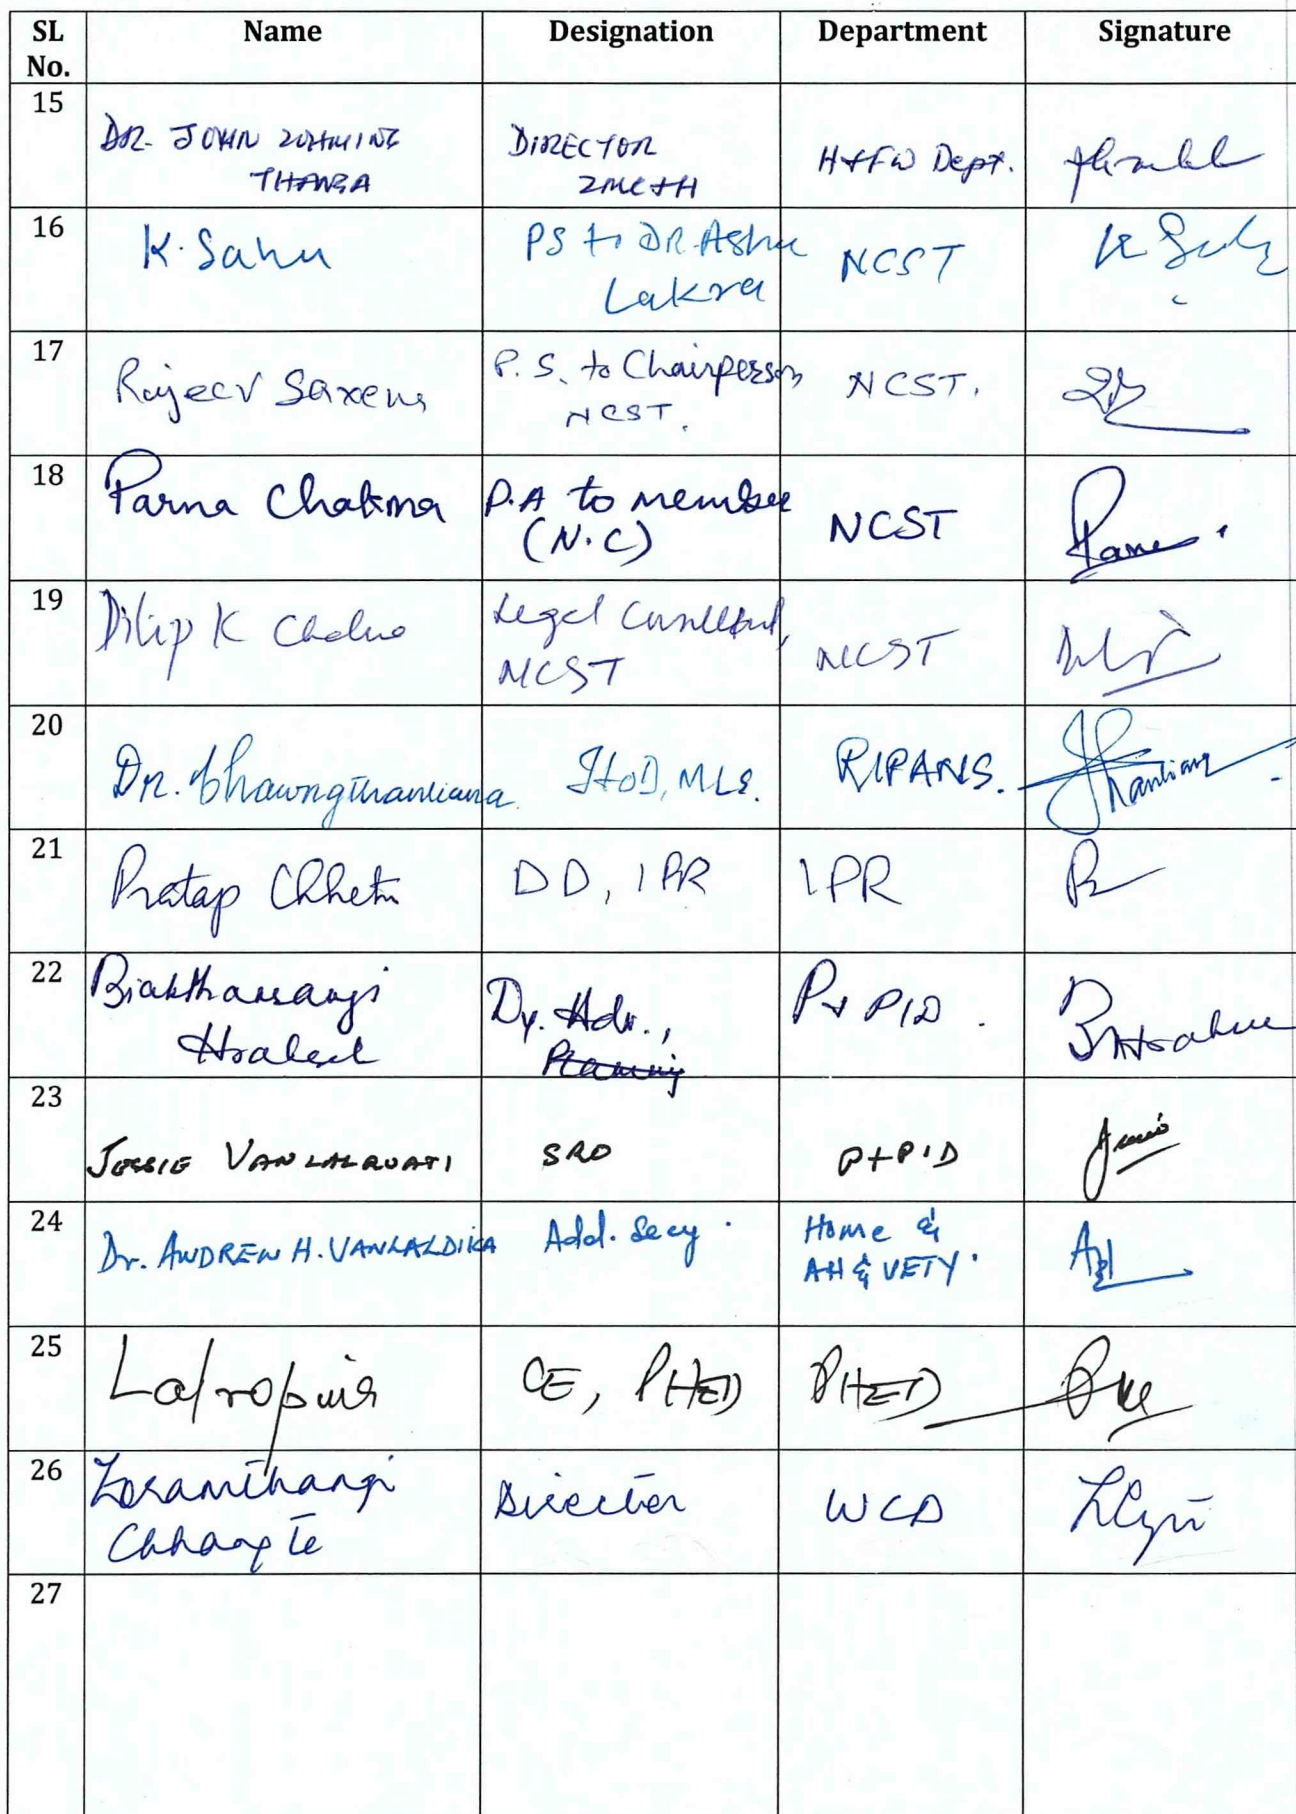 SL No. Name Designation Department Signature
15 DR. JOHN ZOHMING THANGA DIRECTOR ZMC&H H&FW Dept.
16 K. Sahu PS to DR. Asha Lakra NCST
17 Rajeev Saxena P.S. to Chairperson NCST. NCST.
18 Parna Chakma P.A to member (N.C) NCST
19 Dilip K Legal Consultant, NCST NCST
20 Dr. HOD, MLS. RIPANS.
21 Pratap Chhetri DD, IPR IPR
22 Biakthansangi Hrahsel Dy. Adv., Planning P & PID.
23 JESSIE VANLALRUATI SRO P+PID
24 Dr. ANDREW H. VANLALDIKA Add. Secy. Home & AH & VETY.
25 CE, PHED PHED
26 Zoramthangi Chhangte Director WCD
27